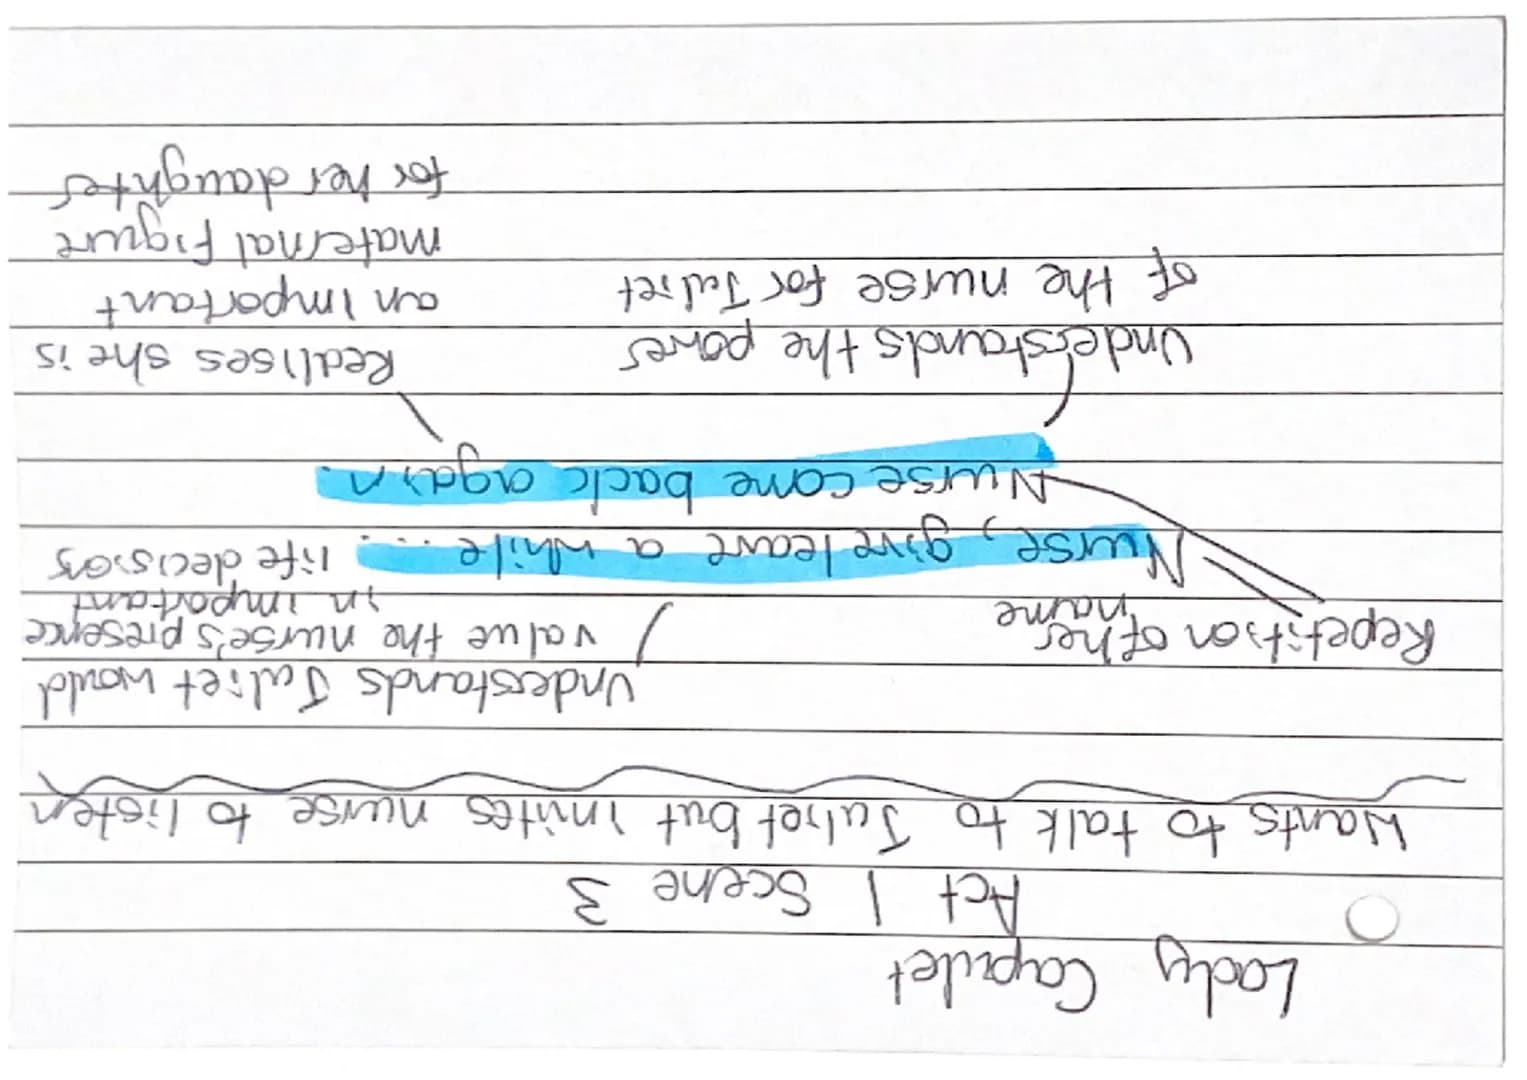 Lady Capulet
Act 1 Scene 3
Wants to talk to Juliet but invites nurse to listen
Understands Juliet would
value the nurse's presence
in important
life decision
Repetition of her
name
Nurse, give leave a while ...
Nurse come back again.
Understands the power
of the nurse for Juliet
Realises she is
an important
maternal figure
for her daughter